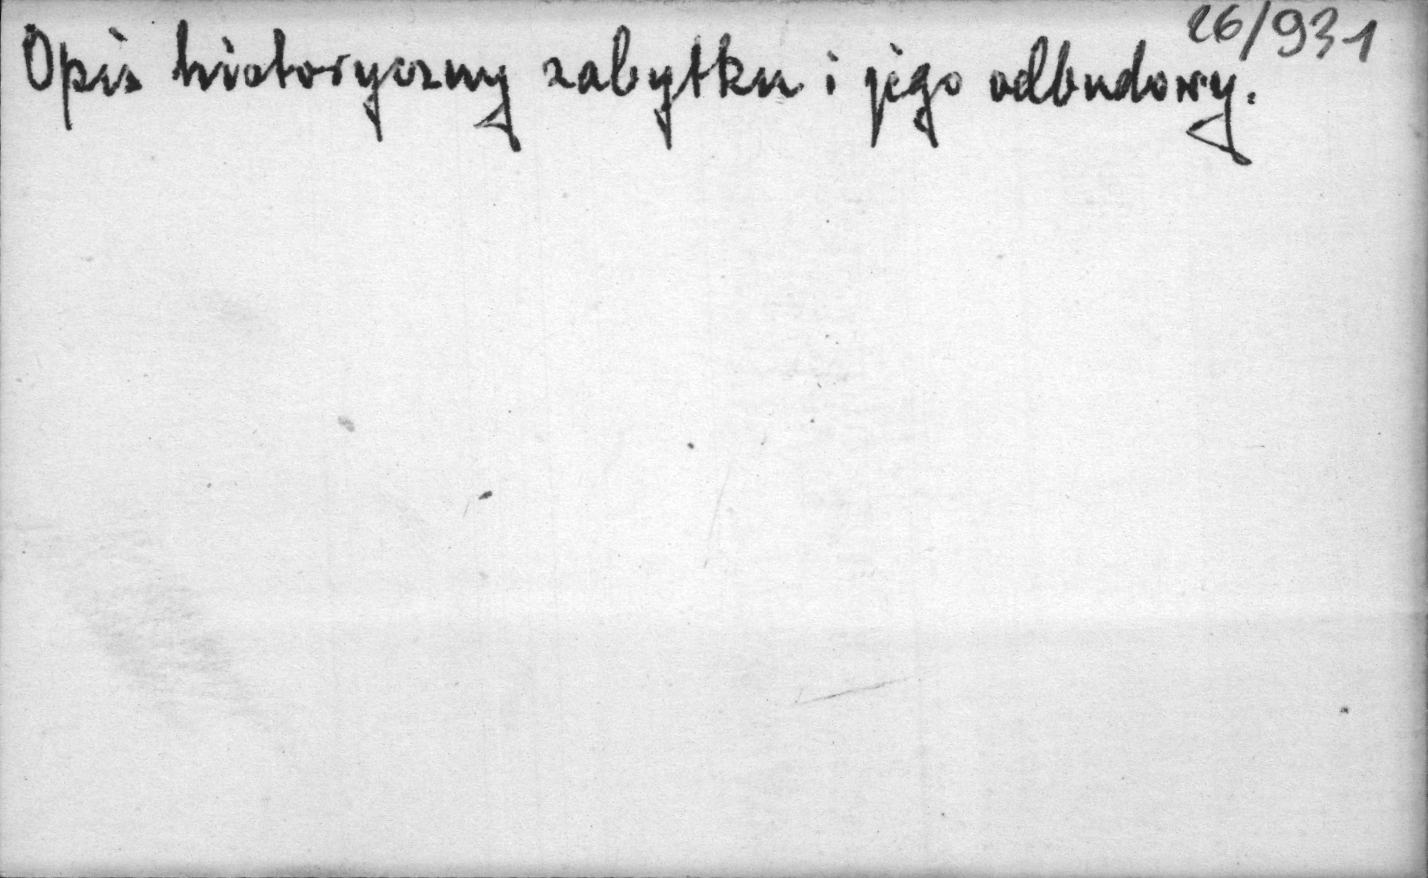 26/931
Opis historyczny zabytku i jego odbudowy.